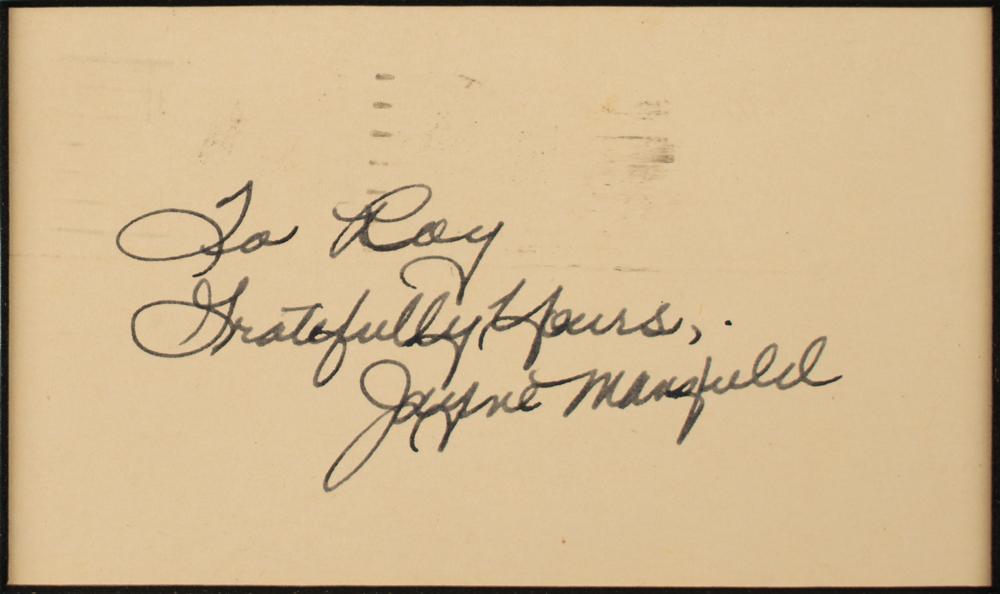 To Roy
Gratefully Yours,
Jayne Mansfield